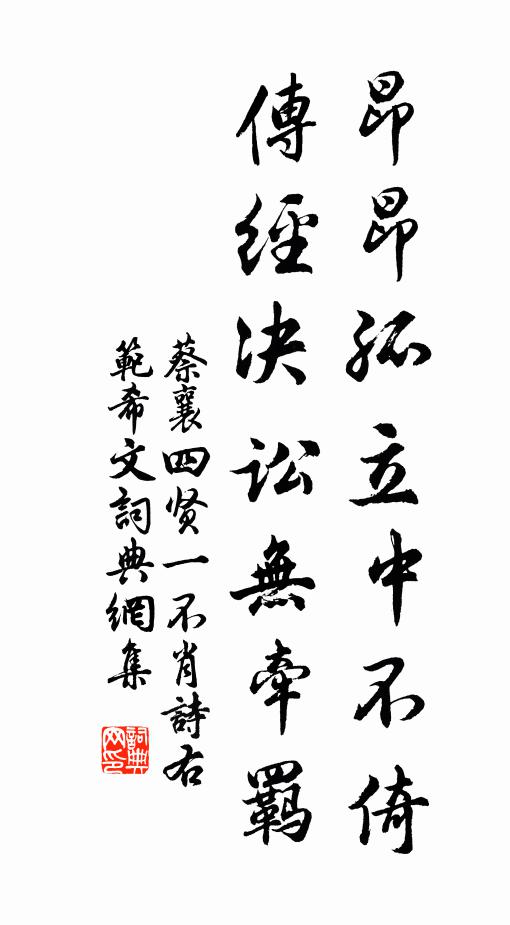 昂昂孤立中不倚
傳經决訟無牽羈
蔡襄四贤一不肖詩右
範希文詞典網集
詞典網印